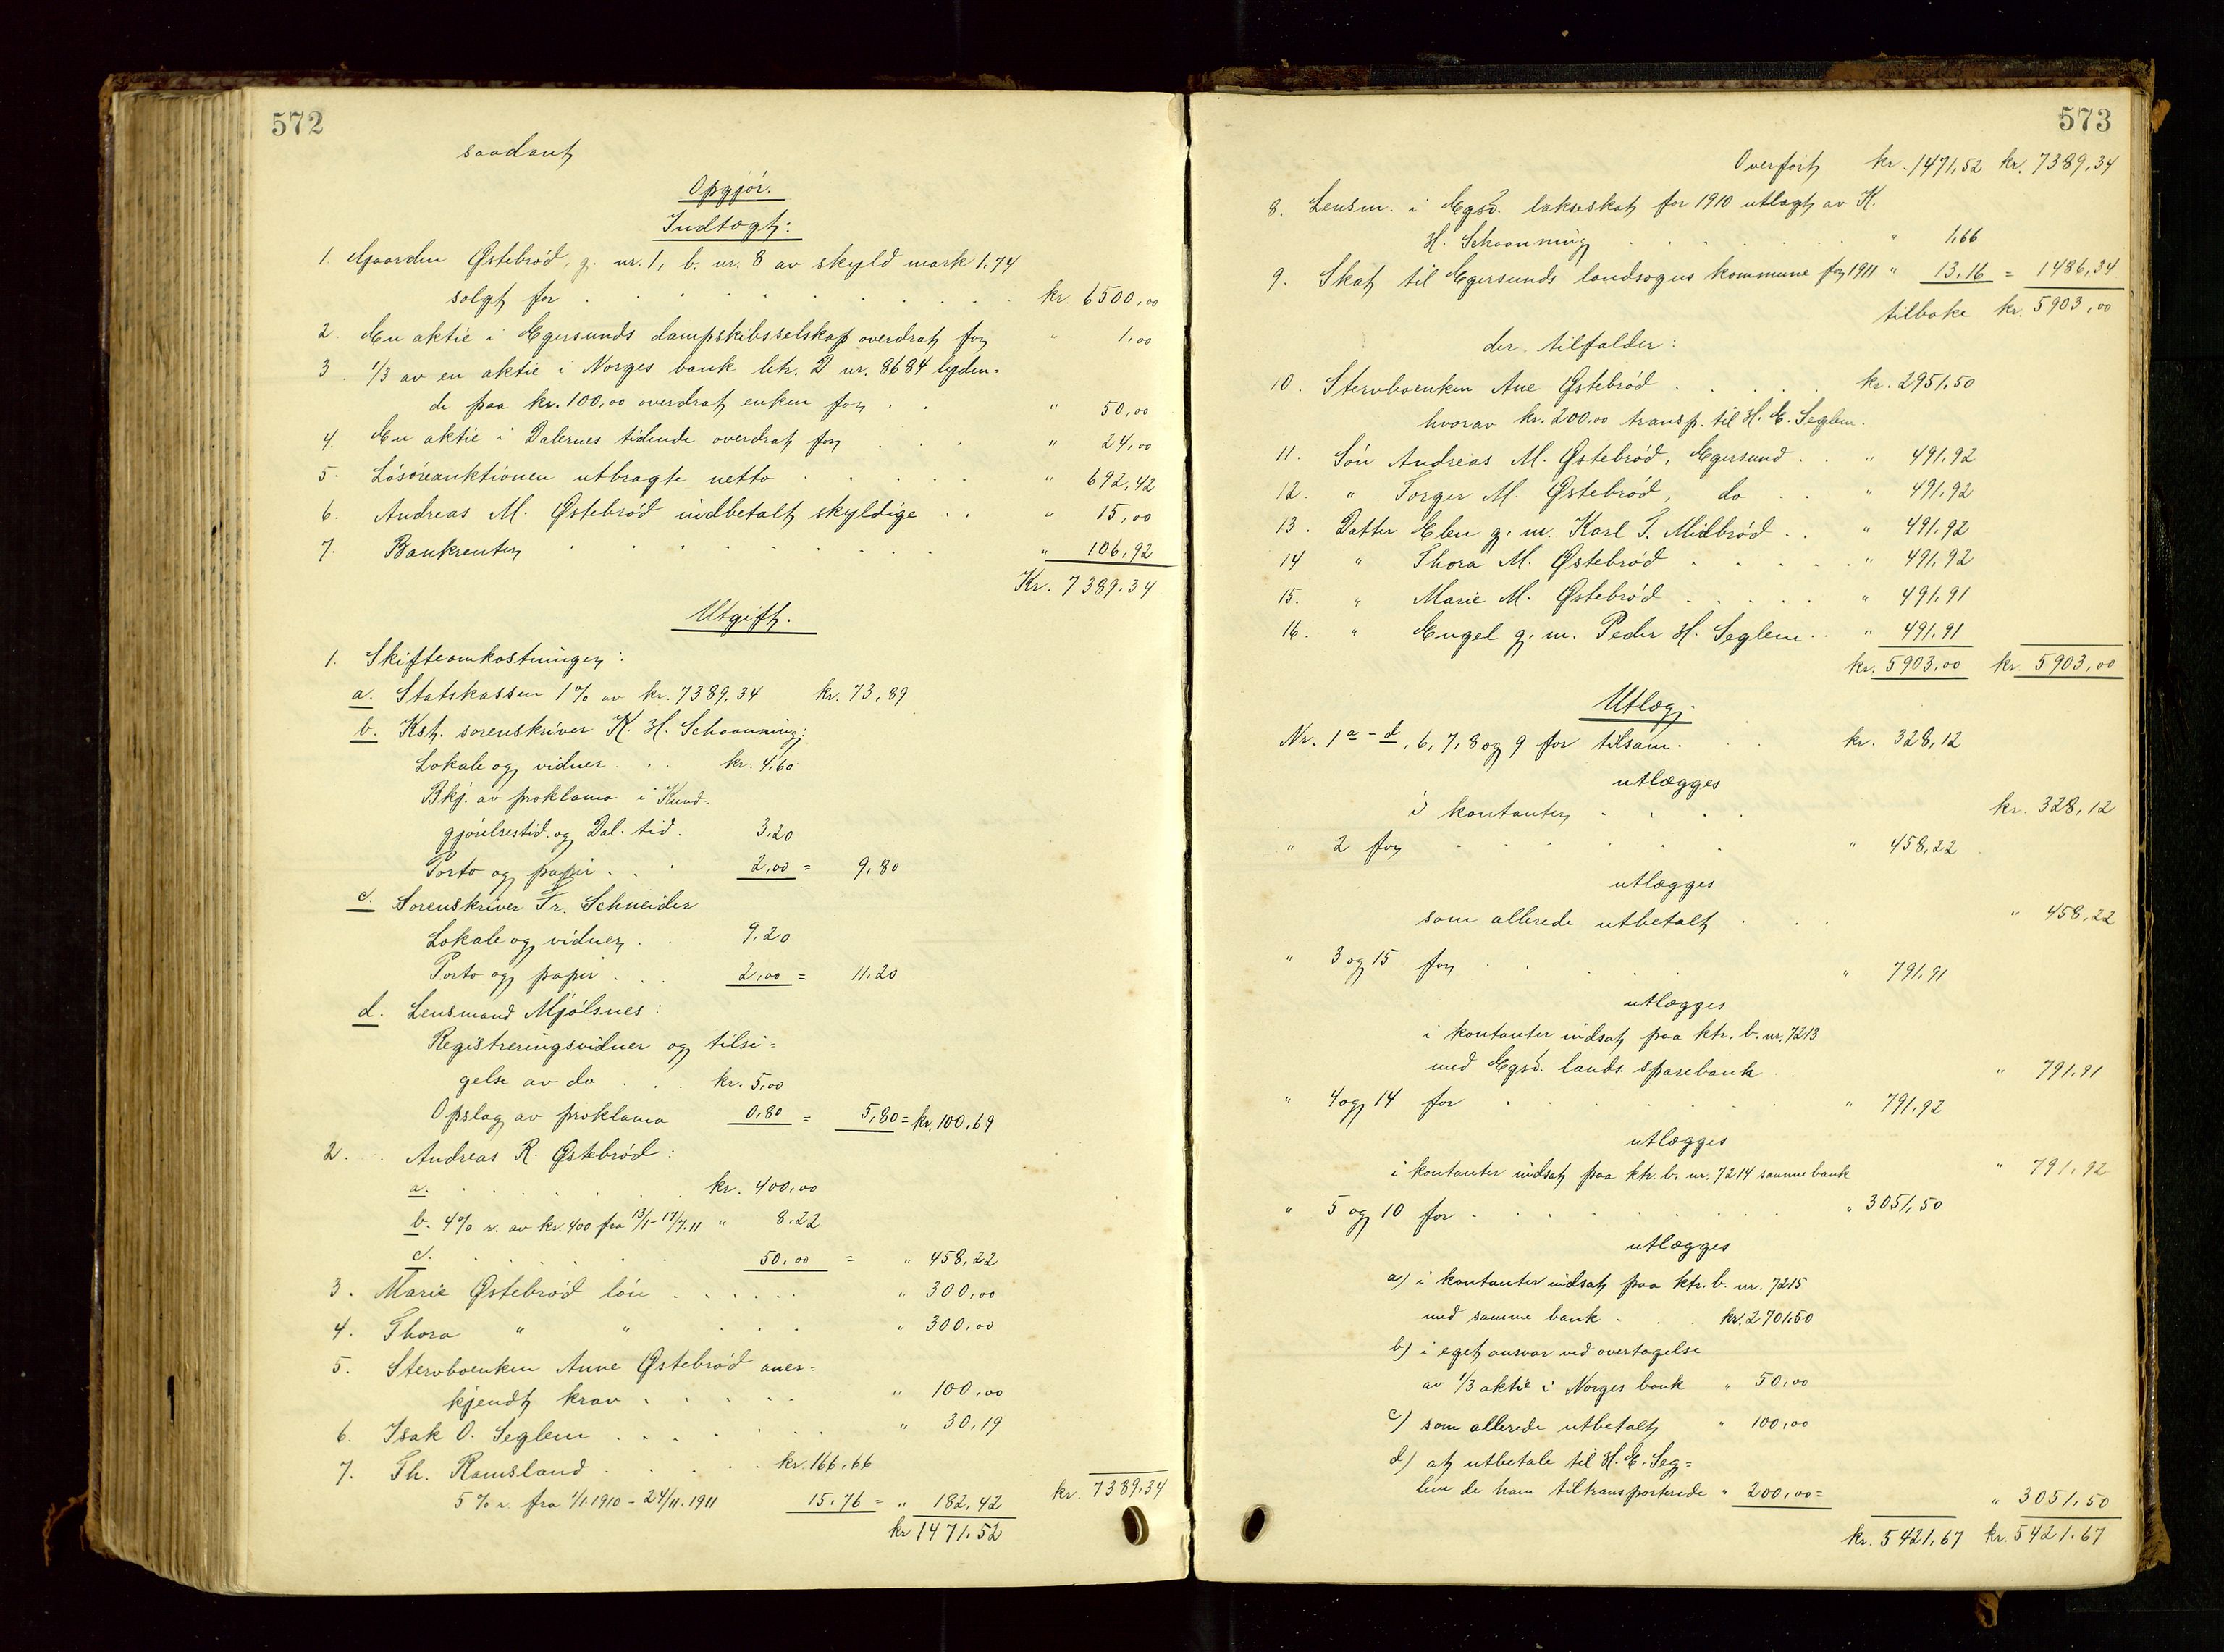 572
saadant
Opgjør.
Indtægt:
1. Gaarden Østebrød, g. nr. 1, b. nr. 8 av skyld mark 1.74
solgt for . . . . kr. 6500,00
2. En aktie i Egersunds dampskibsselskap overdrat for " 1,00
3. 1/3 av en aktie i Norges bank litr. D nr. 8684 lyden=
de paa kr. 100,00 overdrat enken for . . " 50,00
4. En aktie i Dalernes tidende overdrat for . . . " 24,00
5. Løsøreauktionen utbragte netto . . . . . " 692,42
6. Andreas M. Østebrød indbetalt skyldige . . " 15,00
7. Bankrenter . . . . " 106,92
Kr. 7389,34
Utgift.
1. Skifteomkostninger:
a. Statskassen 1% av kr. 7389,34 kr. 73,89
b. Kst. sorenskriver K. H. Schaanning:
Lokale og vidner . . . kr. 4,60
Bkj. av proklama i Kund=
gjørelsestid. og Dal. tid. 3,20
Porto og papir . . . 2,00 = 9,80
c. Sorenskriver Fr. Schneider
Lokale og vidner . . 9,20
Porto og papir . . . 2,00 = 11,20
d. Lensmand Mjølsnes:
Registreringsvidner og tilsi=
gelse av do . . . kr. 5,00
Opslag av proklama 0,80 = 5,80 = kr. 100,69
2. Andreas R. Østebrød:
a. . . . . kr. 400,00
b. 4% r. av kr. 400 fra 13/1-17/7.11 " 8,22
c. . . . . 50,00 = " 458,22
3. Marie Østebrød løn . . . . . . " 300,00
4. Thora " " . . . " 300,00
5. Stervboenken Anne Østebrød aner=
kjendt krav . . . . . " 100,00
6. Isak O. Seglem . . . . . . " 30,19
7. Th. Ramsland . . . . . kr. 166,66
5% r. fra 1/1.1910 - 24/11.1911 15,76 = " 182,42 kr. 7389,34
kr 1471,52
573
Overført kr. 1471,52 kr. 7389,34
8. Lensm. i Egsd. lakseskat for 1910 utlagt av K.
H. Schaanning . . . . " 1,66
9. Skat til Egersunds landsogns kommune for 1911 " 13,16 = 1486,34
tilbake kr. 5903,00
der tilfalder:
10. Stervboenken Ane Østebrød . . . . . kr. 2951,50
hvorav kr. 200,00 transp. til H. E. Seglem.
11. Søn Andreas M. Østebrød, Egersund . . " 491,92
12. " Torger M. Østebrød, do . . " 491,92
13. Datter Elen g. m. Karl T. Midbrød . . " 491,92
14 " Thora M. Østebrød . . . . . " 491,92
15. " Marie M. Østebrød . . . . . " 491,91
16. " Engel g. m. Peder H. Seglem . . " 491,91
kr. 5903,00 kr. 5903,00
Utlæg.
Nr. 1 a - d, 6, 7, 8 og 9 for tilsam. . . kr. 328,12
utlægges
i kontanter . . . . kr. 328,12
" 2 for . . . . " 458,22
utlægges
som allerede utbetalt . . . " 458,22
" 3 og 15 for . . . . " 791,91
utlægges
i kontanter indsat paa ktr. b. nr. 7213
med Egsd. lands. sparebank . . " 791,91
" 4 og 14 for . . . . " 791,92
utlægges
i kontanter indsat paa ktr. b. nr. 7214 samme bank " 791,92
" 5 og 10 for . . . . " 3051,50
utlægges
a) i kontanter indsat paa ktr. b. nr. 7215
med samme bank . . . kr. 2701,50
b) i eget ansvar ved overtagelse
av 1/3 aktie i Norges bank " 50,00
c) som allerede utbetalt " 100,00
d) at utbetale til H. E. Seg=
lem de ham tiltransporterede " 200,00 = " 3051,50
kr. 5421,67 kr. 5421,67